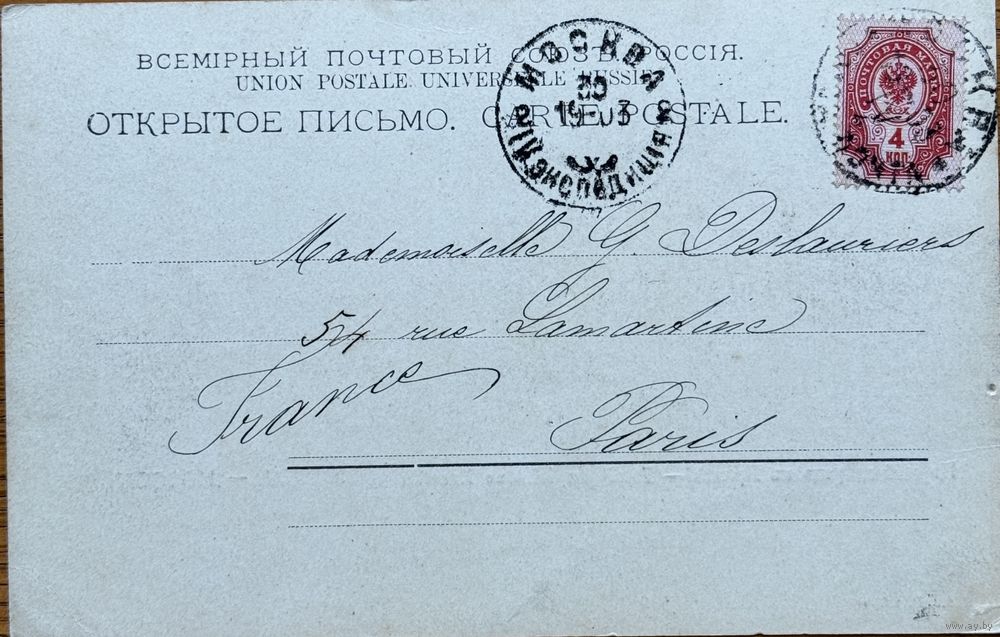 ВСЕМІРНЫЙ ПОЧТОВЫЙ СОЮЗЪ. РОССІЯ.
UNION POSTALE UNIVERSELLE RUSSIE
ОТКРЫТОЕ ПИСЬМО. CARTE POSTALE.
МОСКВА
19 03
ЭКСПЕДИЦІЯ
ПОЧТОВАЯ МАРКА
4
КОП.
Mademoiselle G. Deslauriers
54 rue Lamartine
France
Paris
www.ay.by